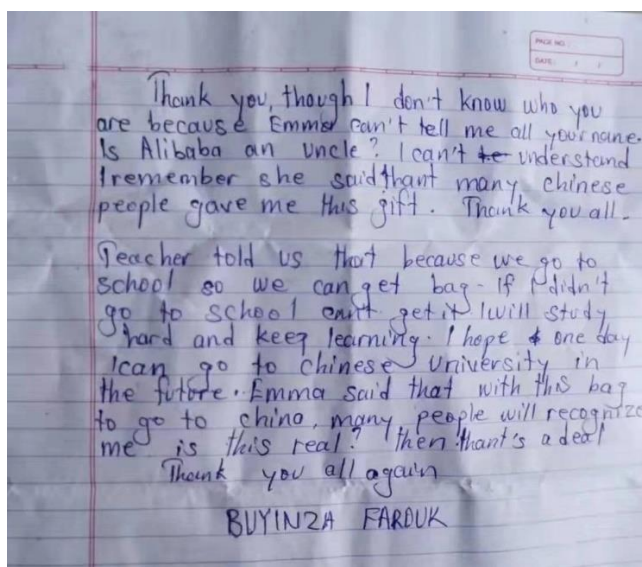 PAGE NO.:
DATE: / /
Thank you, though I don't know who you
are because Emma can't tell me all your name.
Is Alibaba an uncle? I can't te understand
I remember she said thant many chinese
people gave me this gift. Thank you all.
Teacher told us that because we go to
school so we can get bag - If I didn't
go to school can't get it I will study
hard and keep learning. I hope one day
I can go to Chinese University in
the future. Emma said that with this bag
to go to china, many people will recognize
me is this real? then thant's a deal
Thank you all again
BUYINZA FAROUK